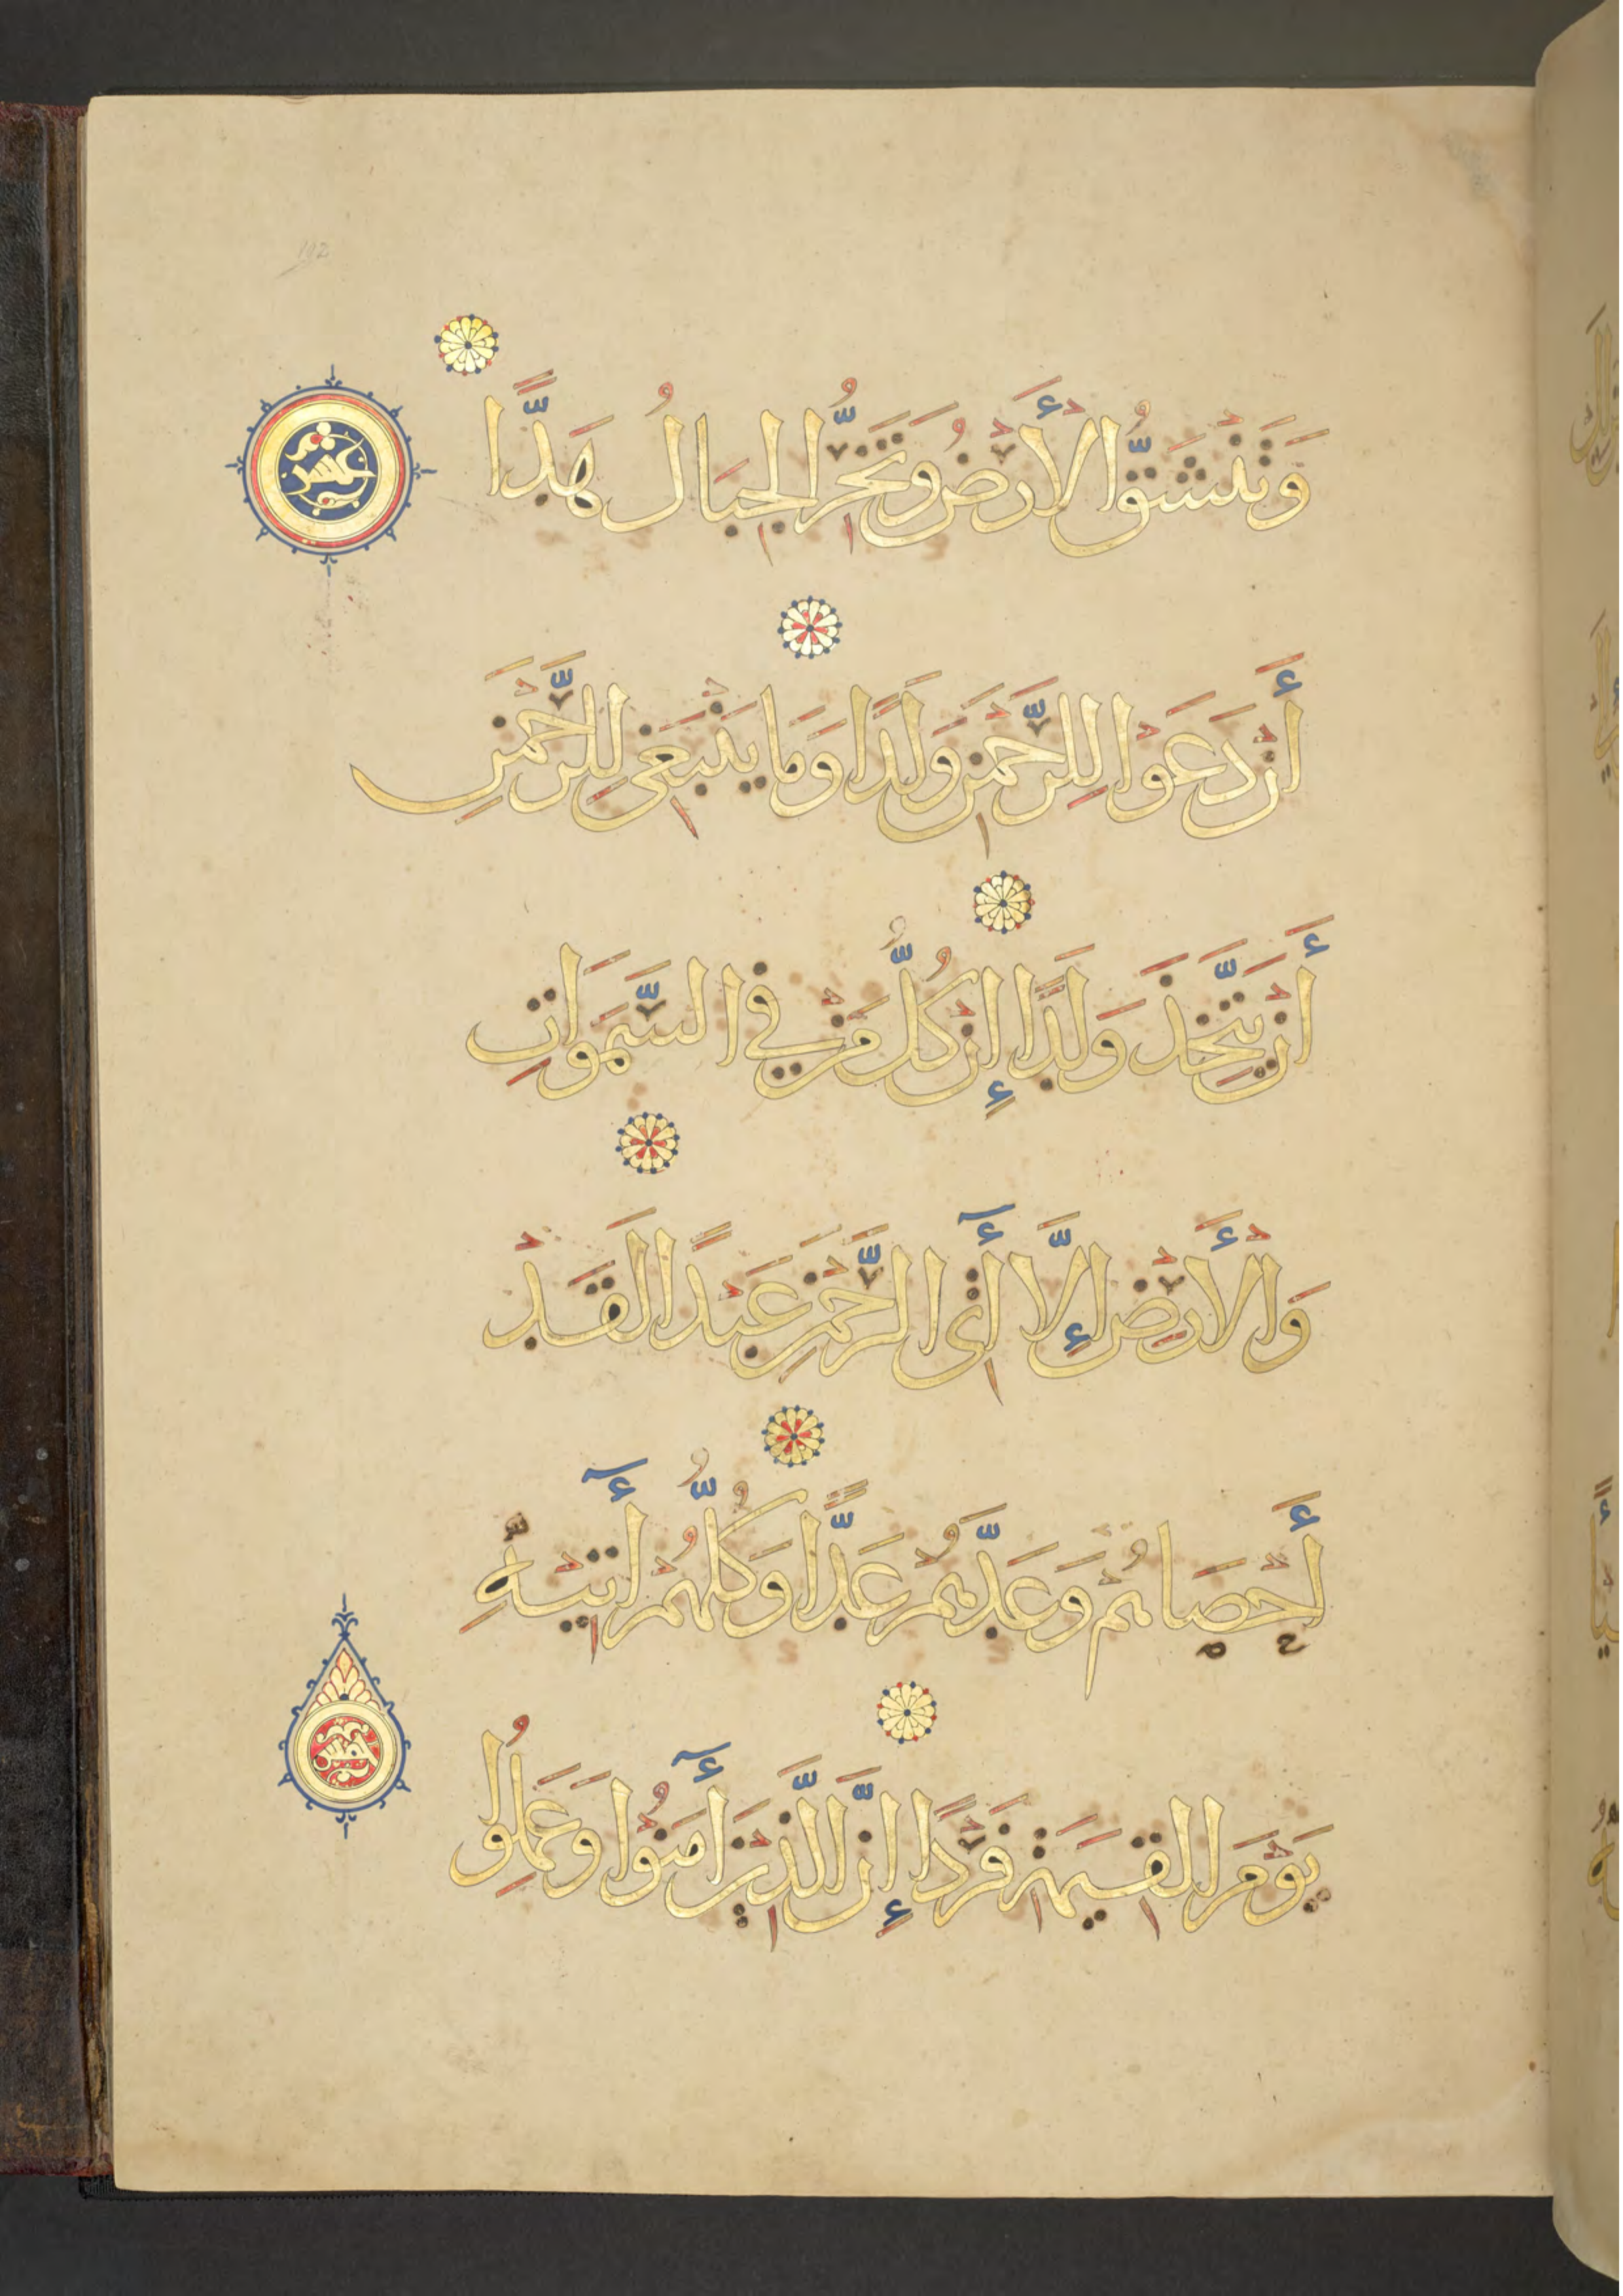 وَتَنْشَقُّ الْأَرْضُ وَتَخِرُّ الْجِبَالُ هَدًّا
عشر
أَنْ دَعَوْا لِلرَّحْمٰنِ وَلَدًا وَمَا يَنْبَغِي لِلرَّحْمٰنِ
أَنْ يَتَّخِذَ وَلَدًا إِنْ كُلُّ مَنْ فِي السَّمَوَاتِ
وَالْأَرْضِ إِلَّا أٓتِى الرَّحْمٰنِ عَبْدًا لَقَدْ
أَحْصَاهُمْ وَعَدَّهُمْ عَدًّا وَكُلُّهُمْ أٓتِيْهِ
يَوْمَ الْقِيٰمَةِ فَرْدًا إِنَّ الَّذِيْنَ أٓمَنُوْا وَعَمِلُوا
خمس
192